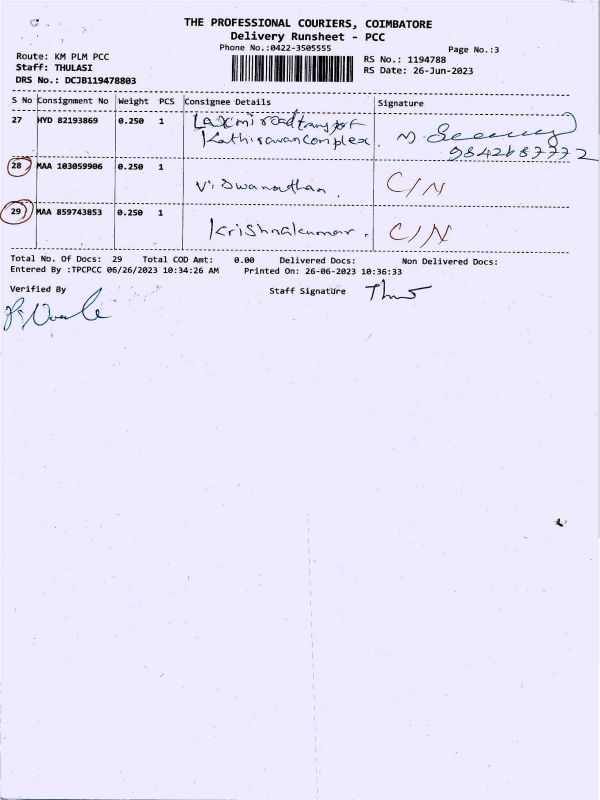 THE PROFESSIONAL COURIERS, COIMBATORE
Delivery Runsheet - PCC
Phone No.:0422-3505555
Page No.:3
Route: KM PLM PCC
Staff: THULASI
DRS No.: DCJB119478803
RS No.: 1194788
RS Date: 26-Jun-2023
S No Consignment No Weight PCS Consignee Details Signature
27 HYD 82193869 0.250 1 Laxmi road transport
Kathiravan complex.
9842687772
28 MAA 103059906 0.250 1
Viswanathan. C/N
29 MAA 859743853 0.250 1
Krishnakumar. C/N
Total No. Of Docs: 29 Total COD Amt: 0.00 Delivered Docs: Non Delivered Docs:
Entered By :TPCPCC 06/26/2023 10:34:26 AM Printed On: 26-06-2023 10:36:33
Verified By Staff Signature